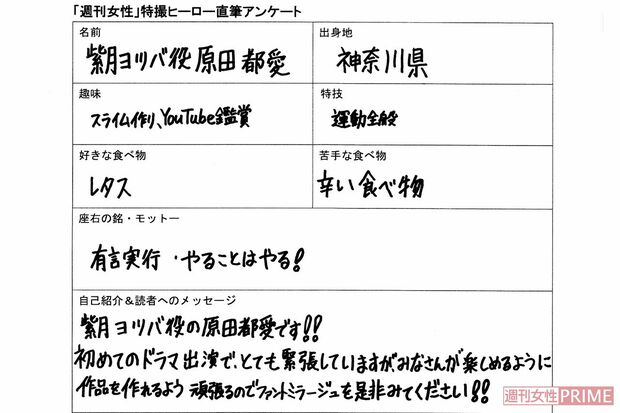 「週刊女性」特撮ヒーロー直筆アンケート
名前
紫月ヨツバ役 原田都愛
出身地
神奈川県
趣味
スライム作り、YouTube鑑賞
特技
運動全般
好きな食べ物
レタス
苦手な食べ物
辛い食べ物
座右の銘・モットー
有言実行・やることはやる!
自己紹介&読者へのメッセージ
紫月ヨツバ役の原田都愛です!!
初めてのドラマ出演で、とても緊張していますがみなさんが楽しめるように
作品を作れるよう頑張るのでファントミラージュを是非みてください!!
週刊女性PRIME